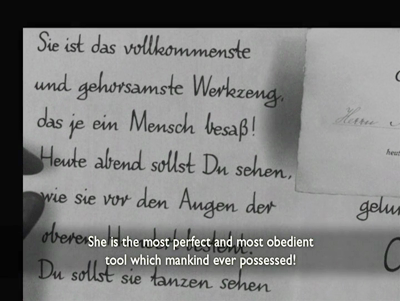 Sie ist das vollkommenste
und gehorsamste Werkzeug,
das je ein Mensch besaß!
Heute abend sollst Du sehen,
wie sie vor den Augen der
oberen
besteht.
Du sollst sie tanzen sehen
Herrn
heut
gelun
She is the most perfect and most obedient
tool which mankind ever possessed!